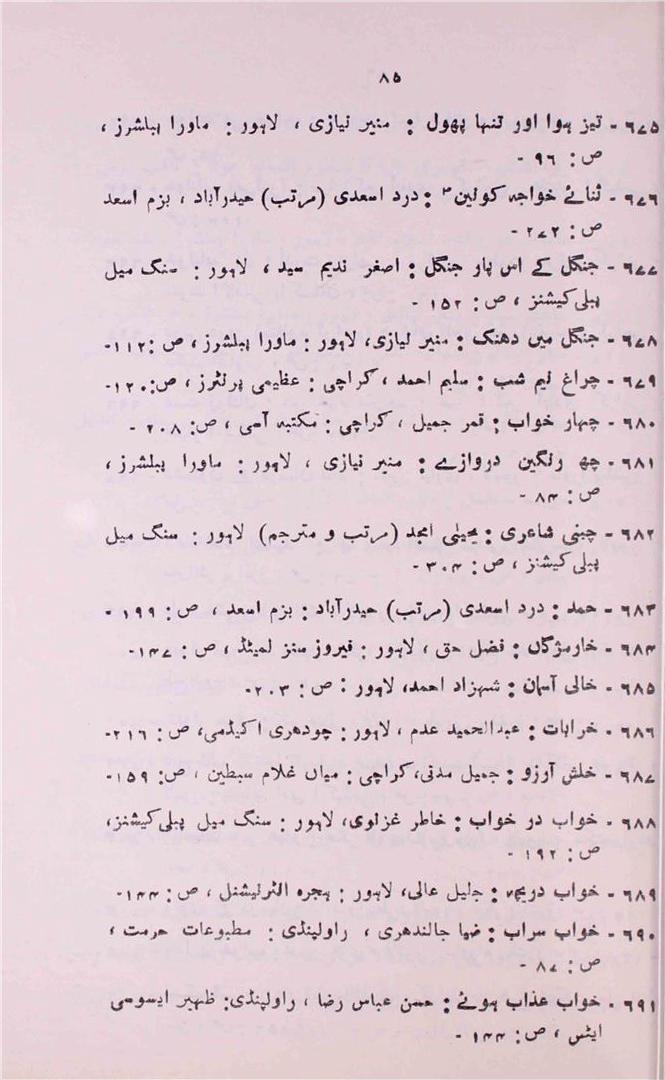 ۸۵
۶۷۵ - تیز ہوا اور تنہا پھول : منیر نیازی ، لاہور : ماورا پبلشرز ،
ص : ۹۶ -
۶۷۶ - ثنائے خواجہ کونین ؐ : درد اسعدی (مرتب) حیدرآباد ، بزم اسعد
ص : ۲۷۲ -
۶۷۷ - جنگل کے اس پار جنگل : اصغر ندیم سید ، لاہور : سنگ میل
پبلی کیشنز ، ص : ۱۵۲ -
۶۷۸ - جنگل میں دھنک : منیر نیازی، لاہور : ماورا پبلشرز ، ص : ۱۱۲-
۶۷۹ - چراغ نیم شب : سلیم احمد ، کراچی : عظیمی پرنٹرز ، ص:۱۲۰-
۶۸۰ - چہار خواب : قمر جمیل ، کراچی : مکتبہ آسی ، ص: ۲۰۸ -
۶۸۱ - چھ رنگین دروازے : منیر نیازی ، لاہور : ماورا پبلشرز ،
ص : ۸۴ -
۶۸۲ - چینی شاعری : یحیٰی امجد (مرتب و مترجم) لاہور : سنگ میل
پبلی کیشنز ، ص : ۳۰۴ -
۶۸۳ - حمد : درد اسعدی (مرتب) حیدرآباد : بزم اسعد ، ص : ۱۹۹ -
۶۸۴ - خارمژگاں : فضل حق ، لاہور : فیروز سنز لمیٹڈ ، ص : ۱۴۷-
۶۸۵ - خالی آسمان : شہزاد احمد، لاہور : ص : ۲۰۳-
۶۸۶ - خرابات : عبدالحمید عدم ، لاہور : چودھری اکیڈمی، ص : ۲۱۶-
۶۸۷ - خلش آرزو : جمیل مدنی، کراچی : میاں غلام سبطین ، ص: ۱۵۹-
۶۸۸ - خواب در خواب : خاطر غزنوی، لاہور : سنگ میل پبلی کیشنز،
ص : ۱۹۲ -
۶۸۹ - خواب دریچہ : جلیل عالی، لاہور : ہجرہ انٹرنیشنل ، ص : ۱۴۴-
۶۹۰ - خواب سراب : ضیا جالندھری ، راولپنڈی : مطبوعات حرمت ،
ص : ۸۷ -
۶۹۱ - خواب عذاب ہوئے : حسن عباس رضا ، راولپنڈی: ظہیر ایسوسی
ایٹس ، ص : ۱۴۴ -